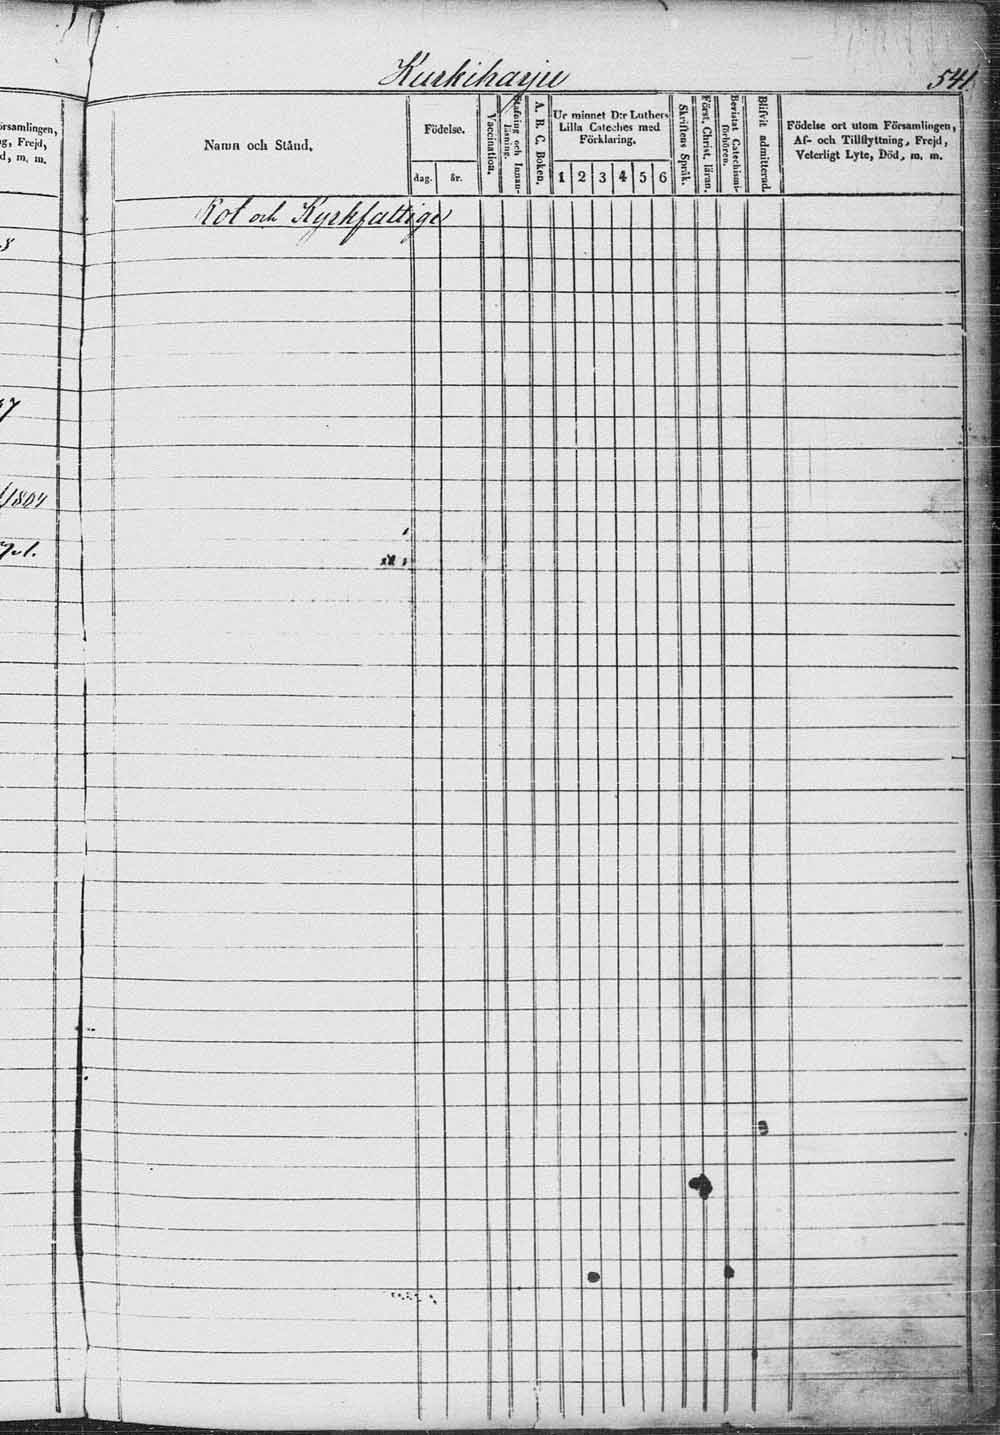 Kurkiharju
541.
örsamlingen,
g, Frejd,
d, m. m.
Namn och Stånd.
Födelse.
dag.
år.
Vaccination.
Stafning och Innan-
läsning.
A. B. C. Boken.
Ur minnet D:r Luthers
Lilla Cateches med
Förklaring.
1 2 3 4 5 6
Skriftens Språk.
Först. Christ. läran.
Bevistat Catechismi-
förhören.
Blifvit admitterad.
Födelse ort utom Församlingen,
Af- och Tillflyttning, Frejd,
Veterligt Lyte, Död, m. m.
Rot och Kyrkfattige
1804